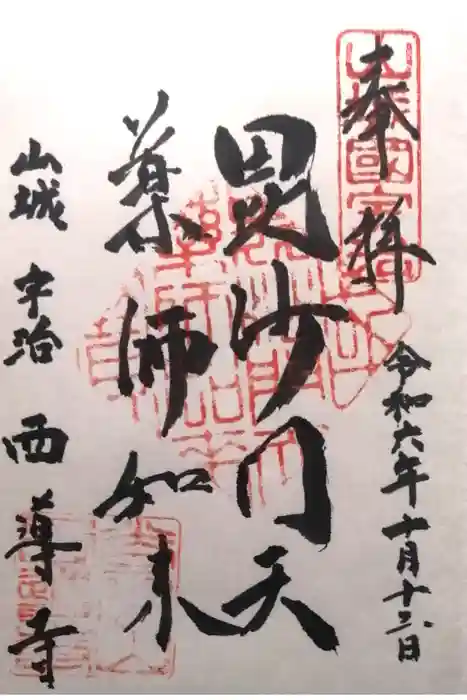 奉拝
令和六年十月十三日
毘沙門天
薬師如来
山城 宇治 西導寺